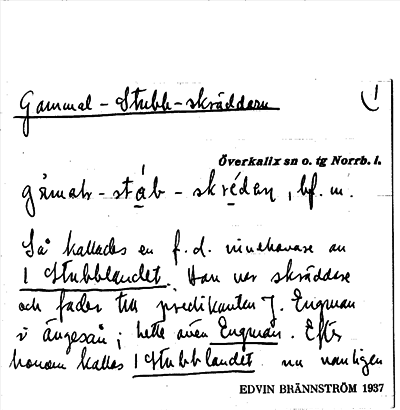 Gammal-Stubb-skräddarn
1
Överkalix sn o. tg Norrb. l.
gamab-stáb-skrédan, bf. m.
Så kallades en f.d. innehavare av
1 Stubblandet. Han var skräddare
och fader till predikanten J. Engman
i Ängeså; hette även Engman. Efter
honom kallas 1 Stubblandet nu vanligen
EDVIN BRÄNNSTRÖM 1937